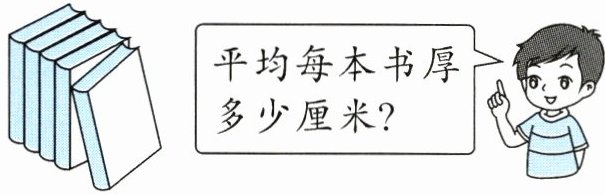 平均每本书厚
多少厘米？